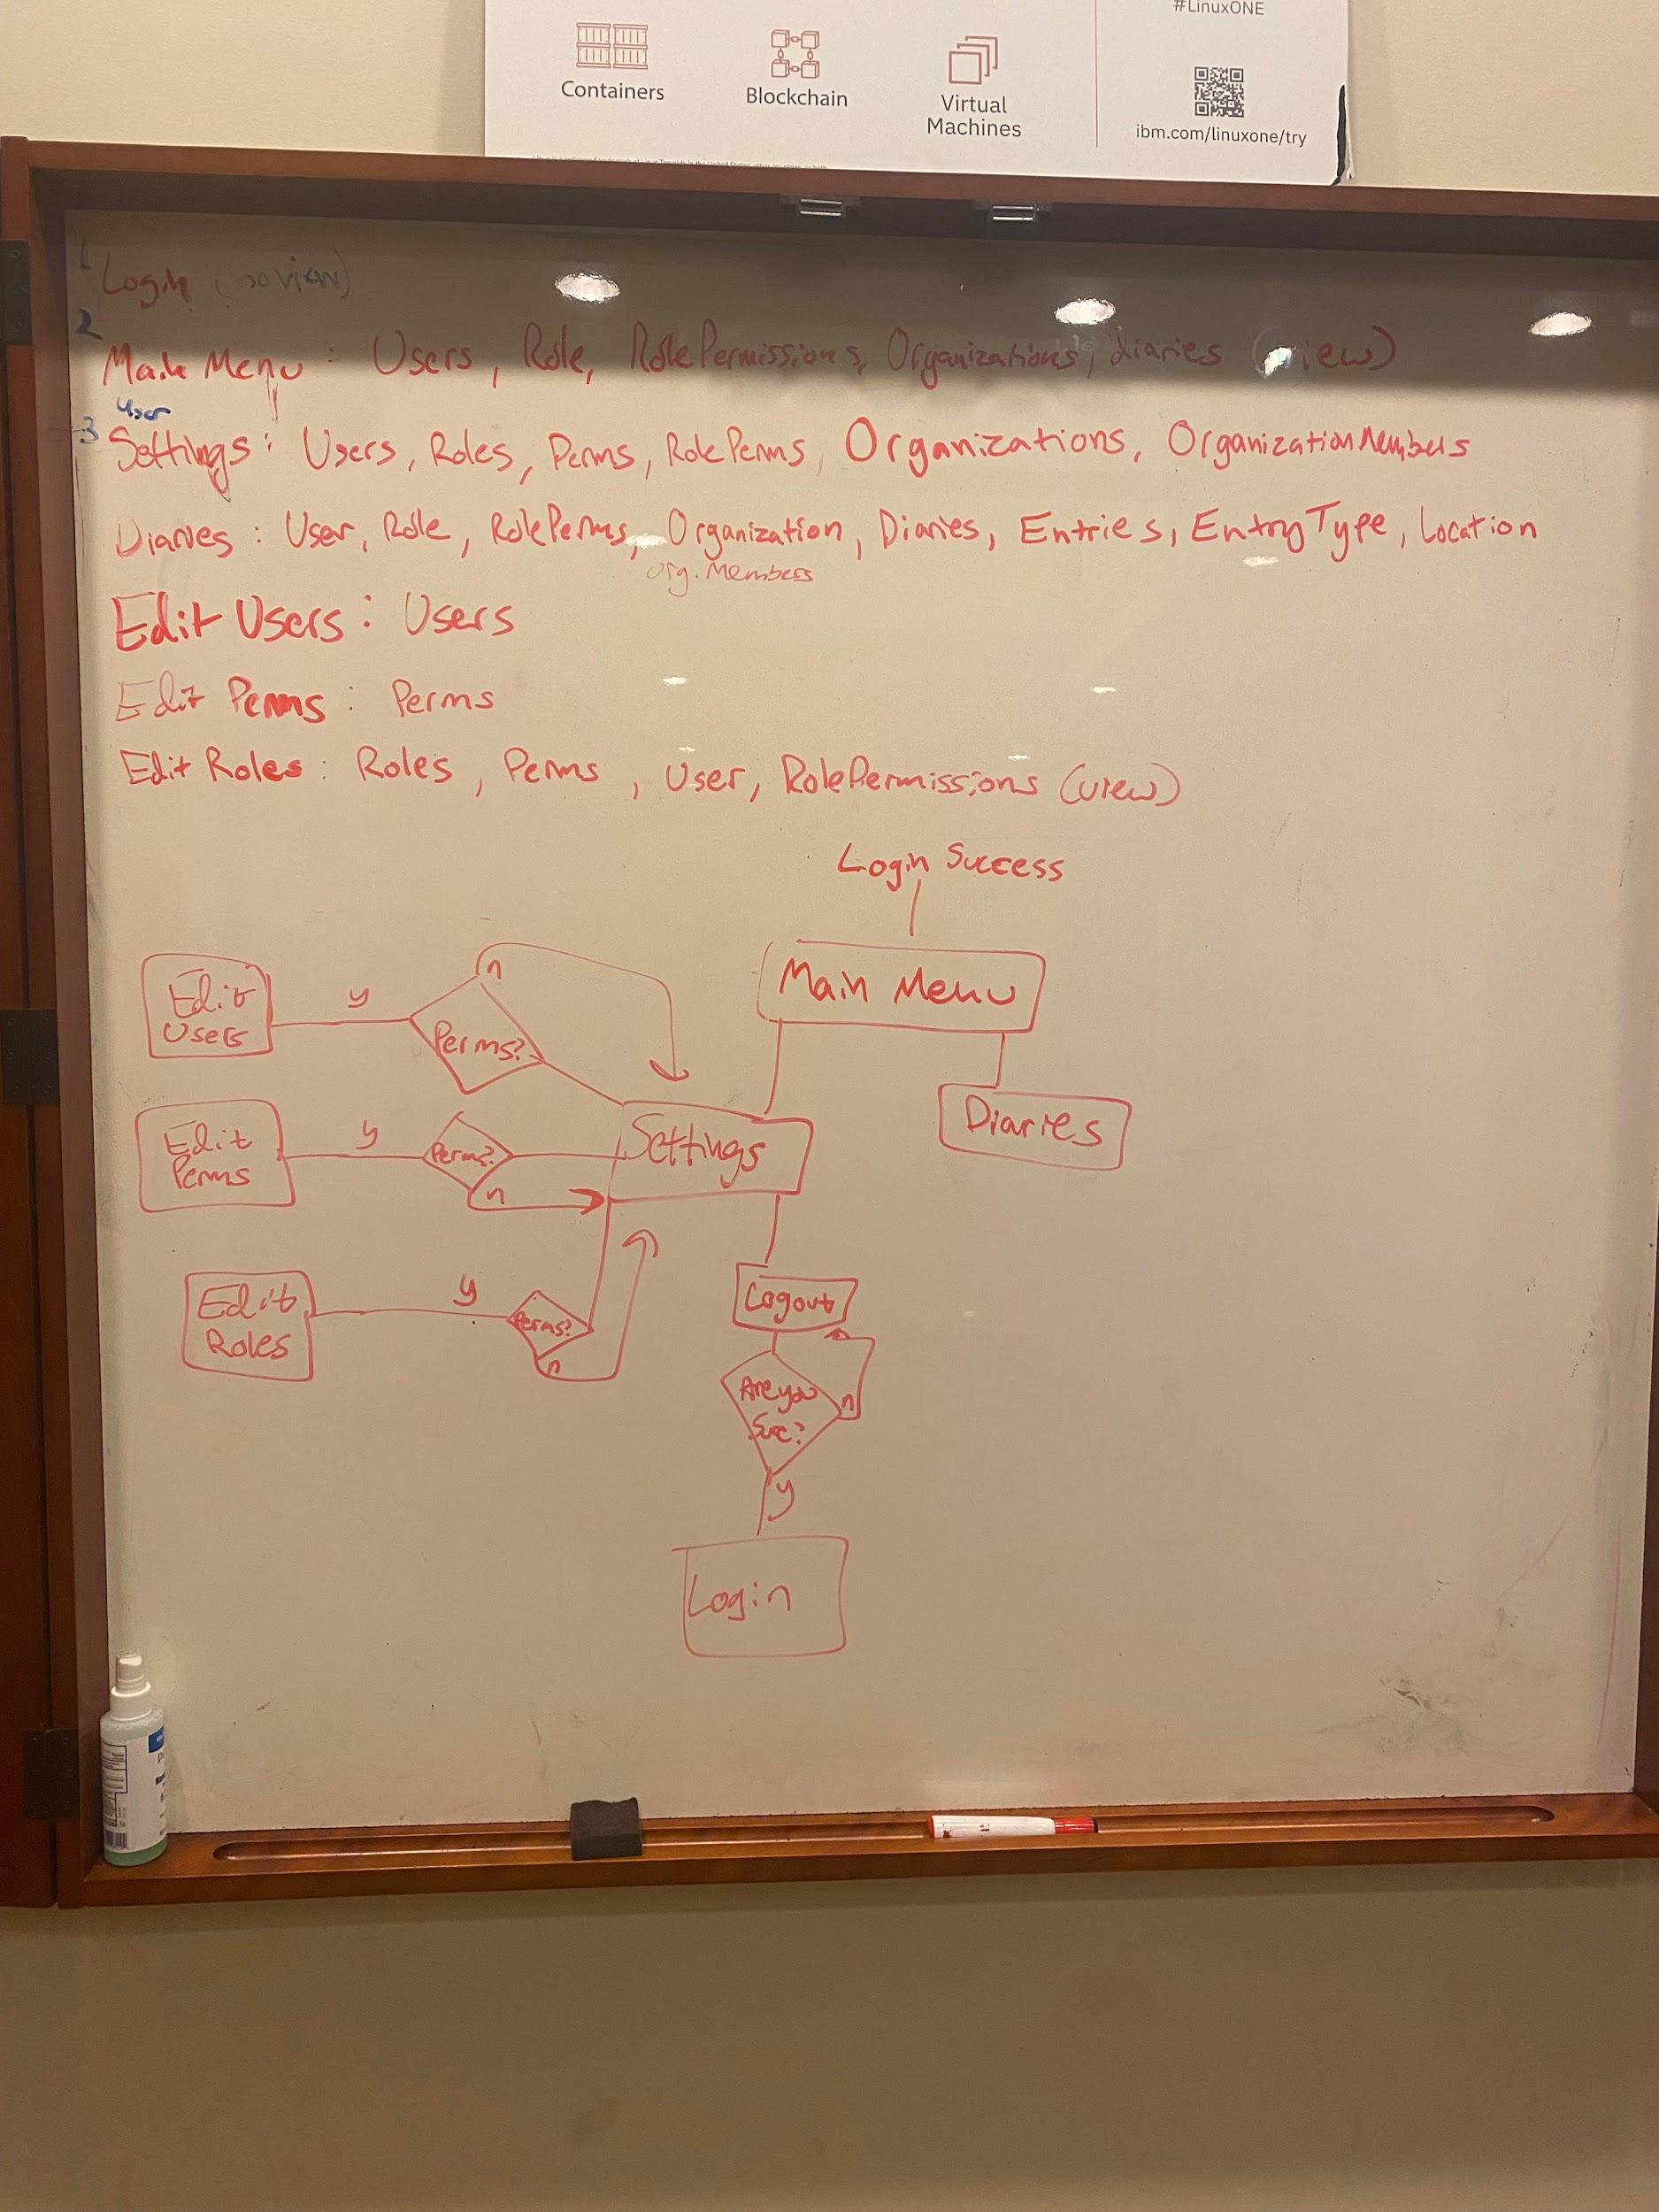 #LinuxONE
Containers
Blockchain
Virtual
Machines
ibm.com/linuxone/try
1
Login (no view)
2
Main Menu : Users, Role, RolePermissions, Organizations, diaries (view)
User
3
Settings : Users, Roles, Perms, RolePerms, Organizations, OrganizationMembers
Diaries : User, Role, RolePerms, Organization, Diaries, Entries, EntryType, Location
Org. Members
Edit Users : Users
Edit Perms : Perms
Edit Roles : Roles, Perms, User, RolePermissions (view)
Login Success
Main Menu
Edit
Users
y
n
Perms?
Diaries
Edit
Perms
y
Perms?
n
Settings
Edit
Roles
y
Perms?
n
Logout
Are you
Sure?
n
y
Login